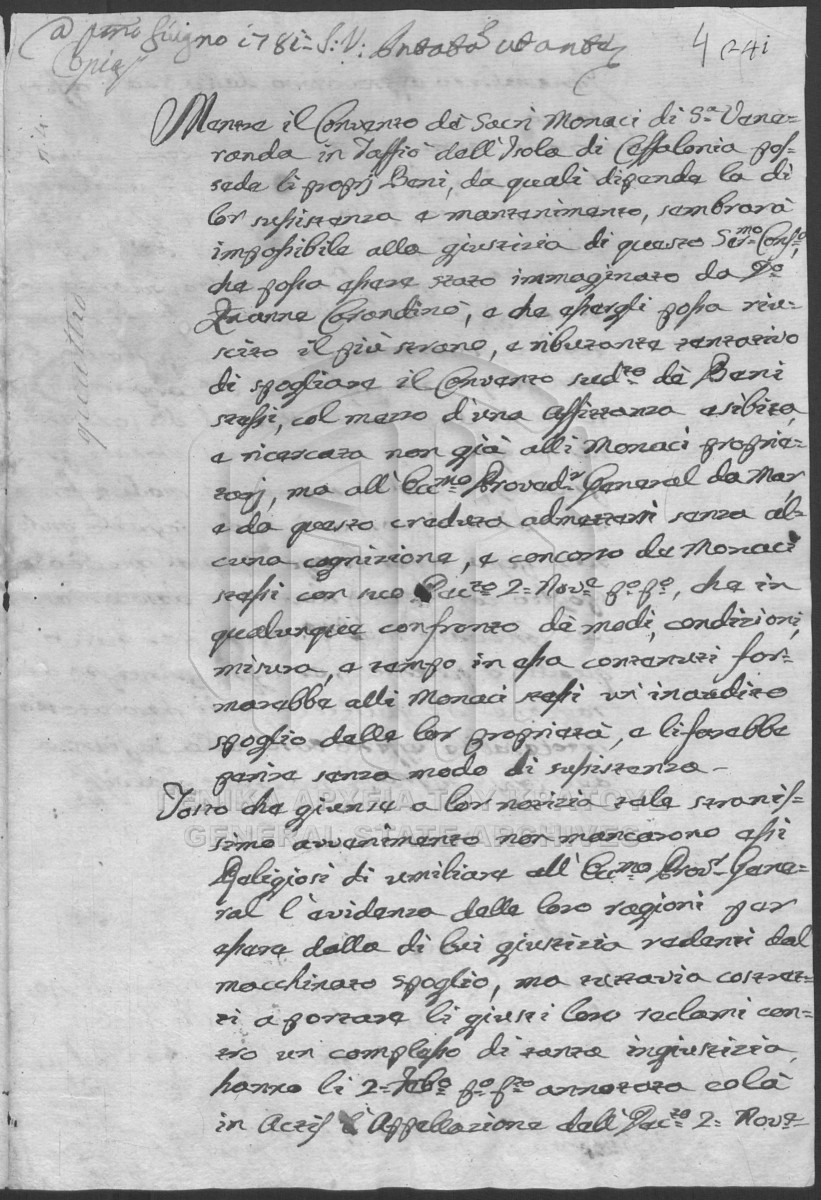 Giugno 1781 S. V.
Copia
4
Mentre il Convento de Sacri Monaci di S.ta Vene=
randa in Taffiò dell'Isola di Ceffalonia pos=
sede li proprj Beni, da quali dipende la di
lor sussistenza e mantenimento, sembrarà
impossibile alla giustizia di questo Ser.mo Cons.o,
che possa essere stato immaginato da D.o
Zuanne Corondinò, e che essergli possa riu=
scito il più strano, e ributante tentativo
di spogliare il Convento sud.to de Beni
stessi, col mezzo d'una Affittanza esibita,
e ricercata non già alli Monaci proprie=
tarj, ma all'Ecc.mo Proved.r General da Mar,
e da questo creduta admettersi senza al=
cuna cognizione, e concorso de Monaci
stessi con suo Dec.to 2= Nov.e p.o p.o, che in
qualunque confronto de modi, condizioni,
misura, e tempo in essa contenuti for=
marebbe alli Monaci stessi un inaudito
spoglio delle lor proprietà, e li farebbe
perire senza modo di sussistenza -
Tosto che giunse a lor notizia tale stranis=
simo avvenimento non mancarono essi
Religiosi di umiliare all'Ecc.mo Prov.r Gene=
ral l'evidenza delle loro ragioni per
essere dalla di lui giustizia redenti dal
macchinato spoglio, ma tuttavia costret=
ti a portare li giusti loro reclami con=
tro un complesso di tanta ingiustizia,
hanno li 2= Feb.o p.o p.to annotata colà
in Actis l'Appellazione dall'Dec.to 2= Nov.e
quattro
ΓΕΝΙΚΑ ΑΡΧΕΙΑ ΤΟΥ ΚΡΑΤΟΥΣ
GENERAL STATE ARCHIVES